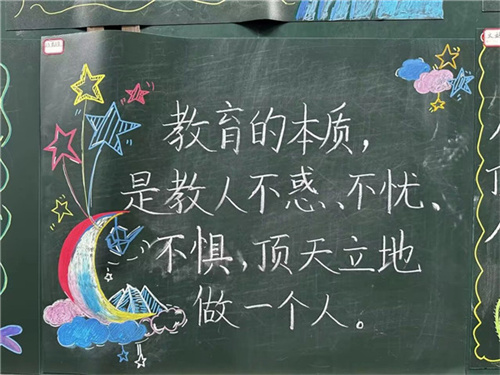 教育的本质，
是教人不惑、不忧、
不惧，顶天立地
做一个人。